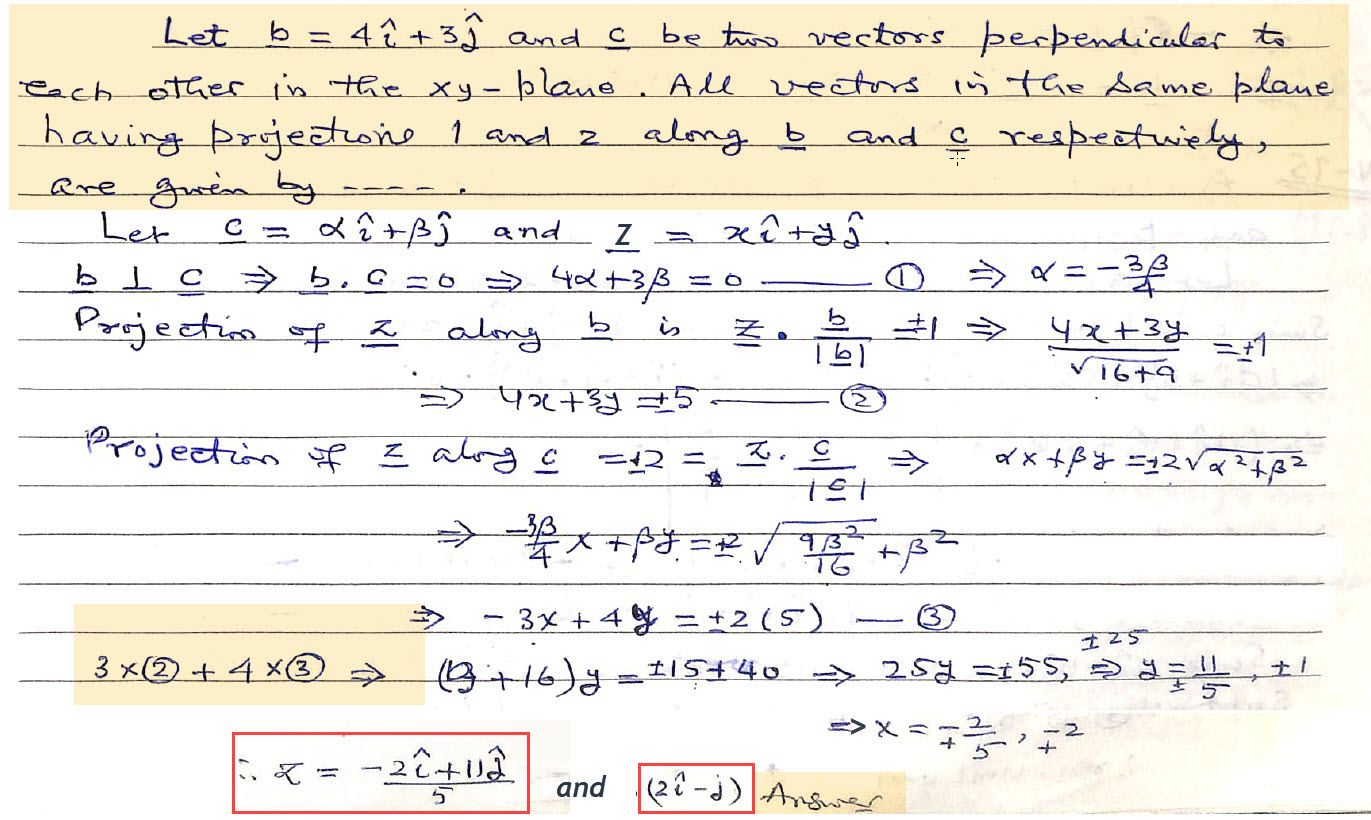 Let b = 4î + 3ĵ and c be two vectors perpendicular to
each other in the xy-plane. All vectors in the same plane
having projections 1 and 2 along b and c respectively,
are given by ----.
Let c = αî + βĵ and z = xî + yĵ.
b ⊥ c ⇒ b . c = 0 ⇒ 4α + 3β = 0 ——— ① ⇒ α = -3β/4
Projection of z along b is z . b/|b| = ±1 ⇒ (4x + 3y)/√(16+9) = ±1
⇒ 4x + 3y = ±5 ——— ②
Projection of z along c = ±2 = z . c/|c| ⇒ αx + βy = ±2√(α² + β²)
⇒ -3β/4 x + βy = ±2 √(9β²/16 + β²)
⇒ -3x + 4y = ±2(5) — ③
3×② + 4×③ ⇒ (9 + 16)y = ±15 ± 40 ⇒ 25y = ±55, ±25 ⇒ y = ± 11/5, ±1
⇒ x = ∓ 2/5, ∓2
∴ z = (-2î + 11ĵ)/5 and (2î - j) Answer